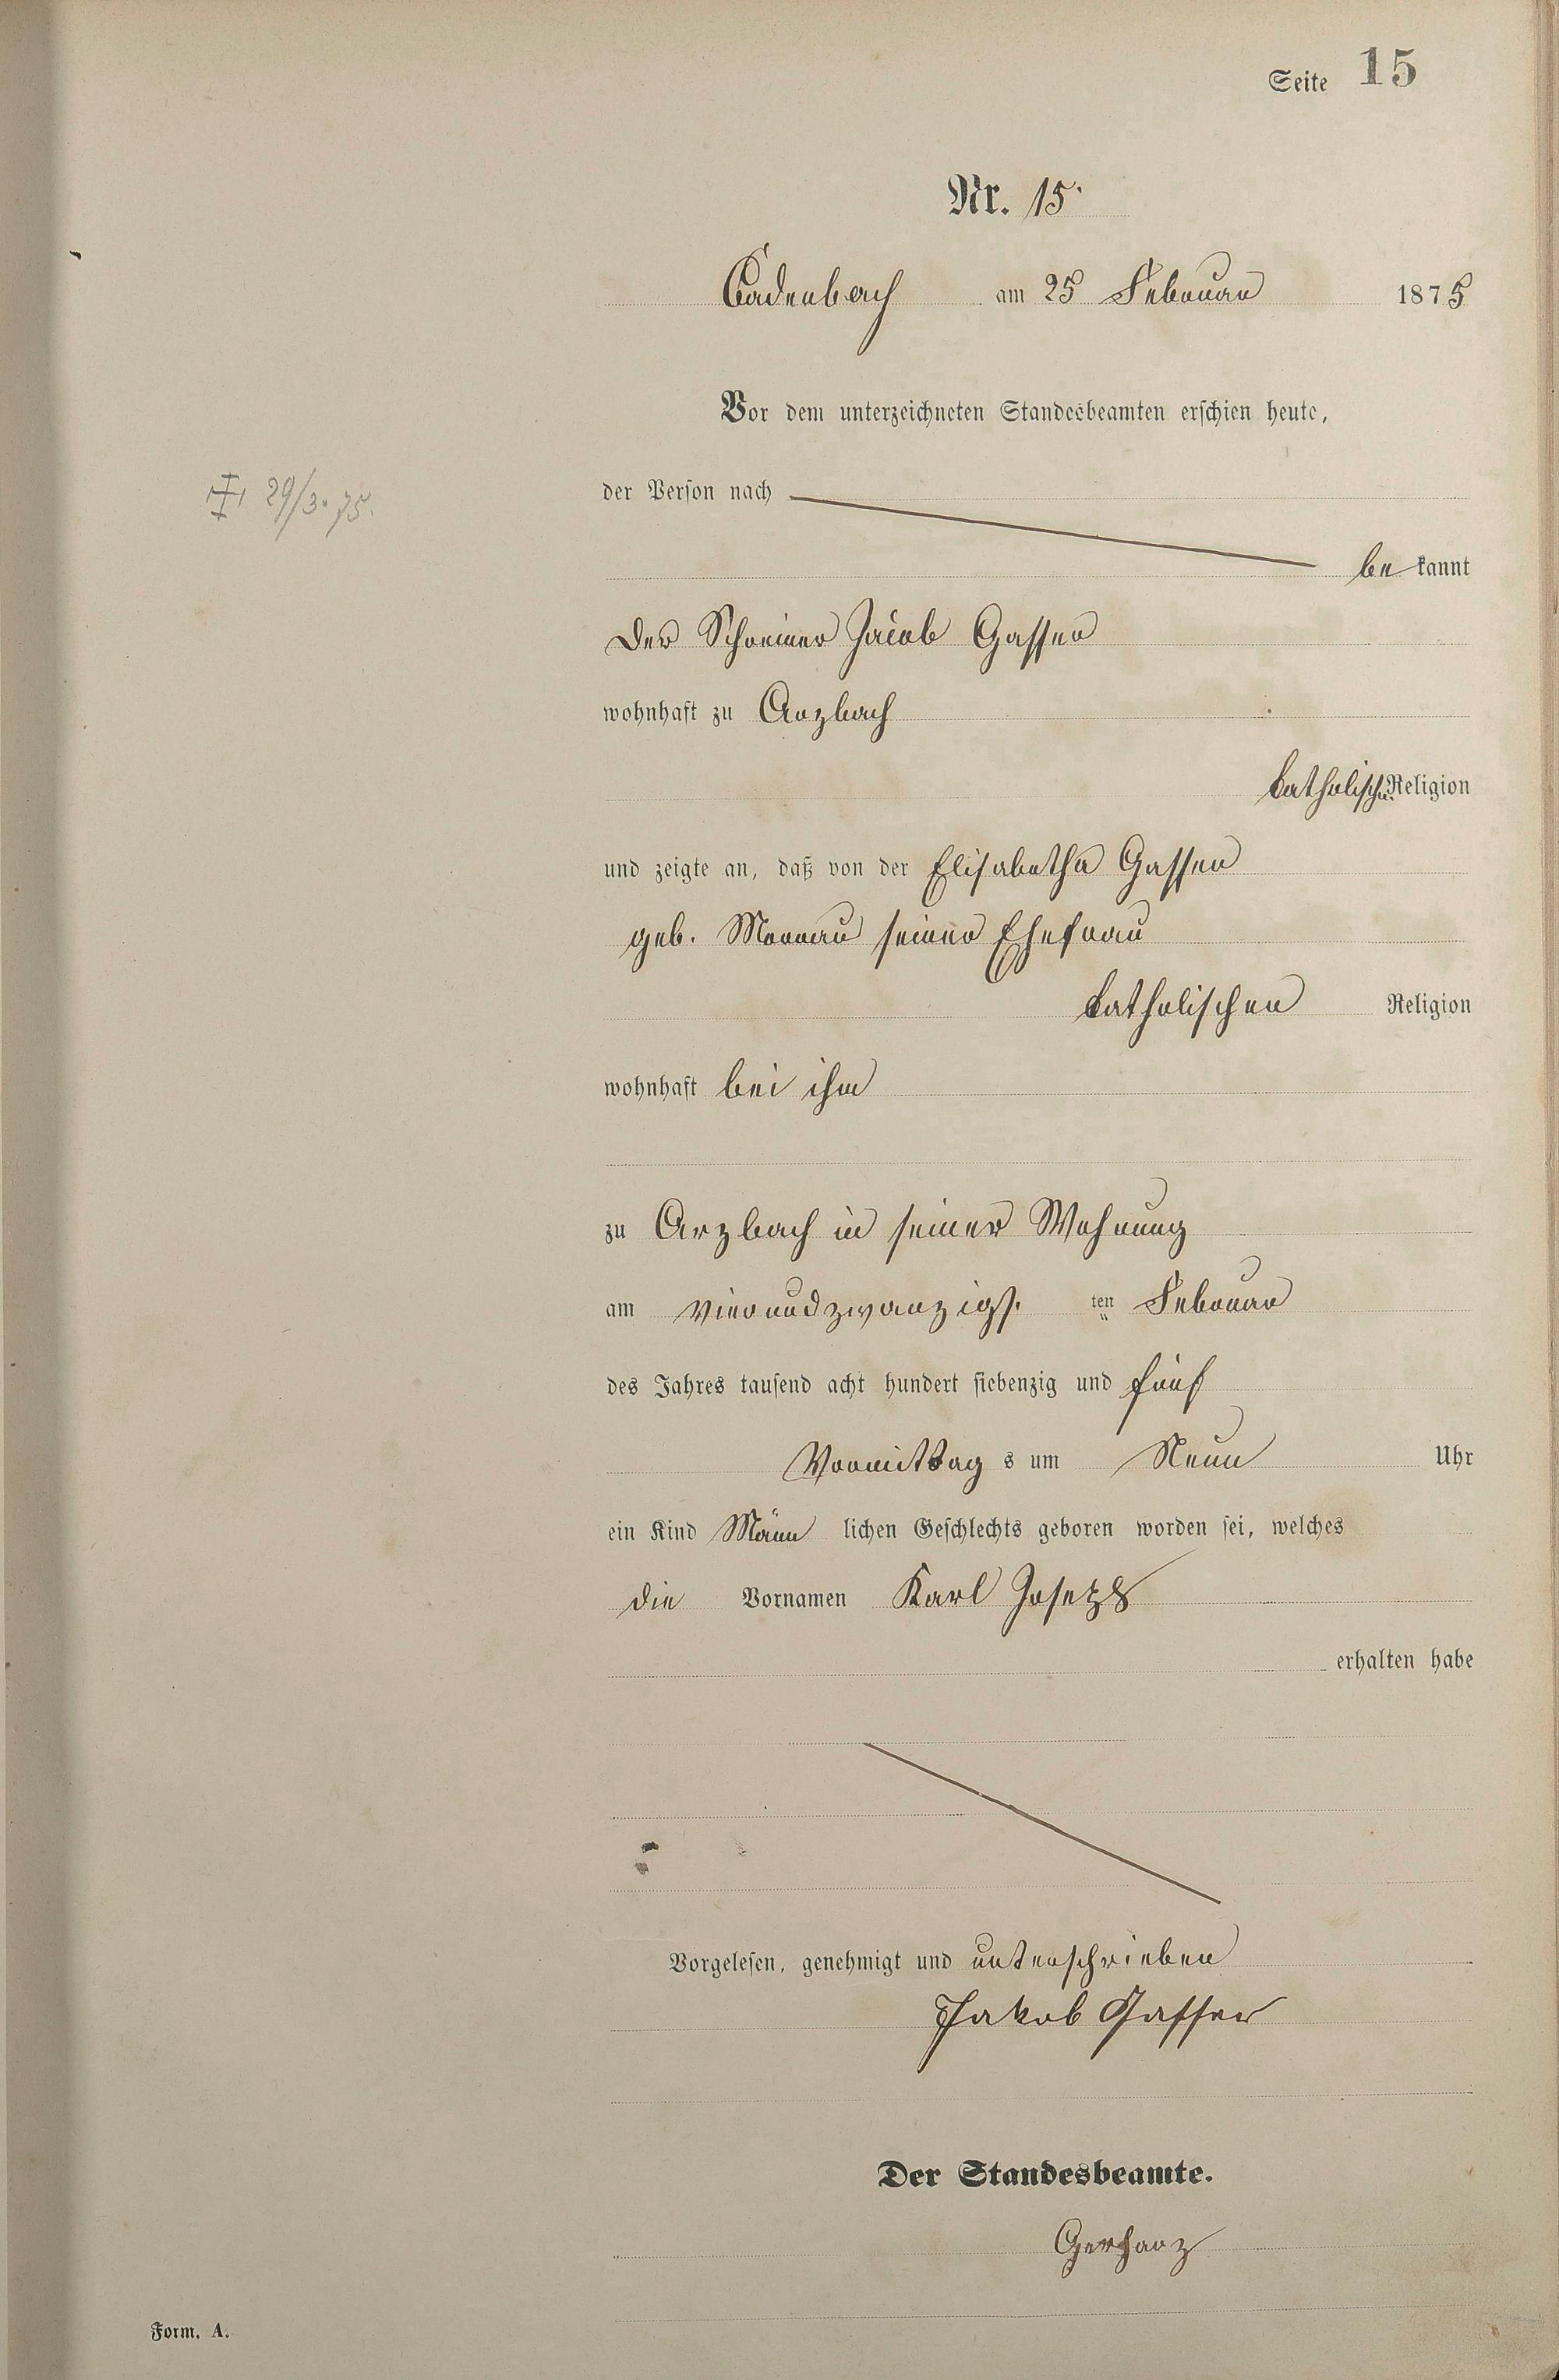 Seite 15
Nr. 15.
Cadenbach am 25 Februar 1875
Vor dem unterzeichneten Standesbeamten erschien heute,
der Person nach
╪ 29/3. 75.
be kannt
Der Schreiner Jacob Gasser
wohnhaft zu Arzbach
katholischer Religion
und zeigte an, daß von der Elisabetha Gasser
geb. seiner Ehefrau
katholischen Religion
wohnhaft bei ihm
zu Arzbach in seiner Wohnung
am vierundzwanzigs. ten Februar
des Jahres tausend acht hundert siebenzig und fünf
Vormittag s um Neun Uhr
ein Kind Männ lichen Geschlechts geboren worden sei, welches
die Vornamen Karl Joseph
erhalten habe
Vorgelesen, genehmigt und unterschrieben
Jakob Gasser
Der Standesbeamte.
Gerharz
Form. A.